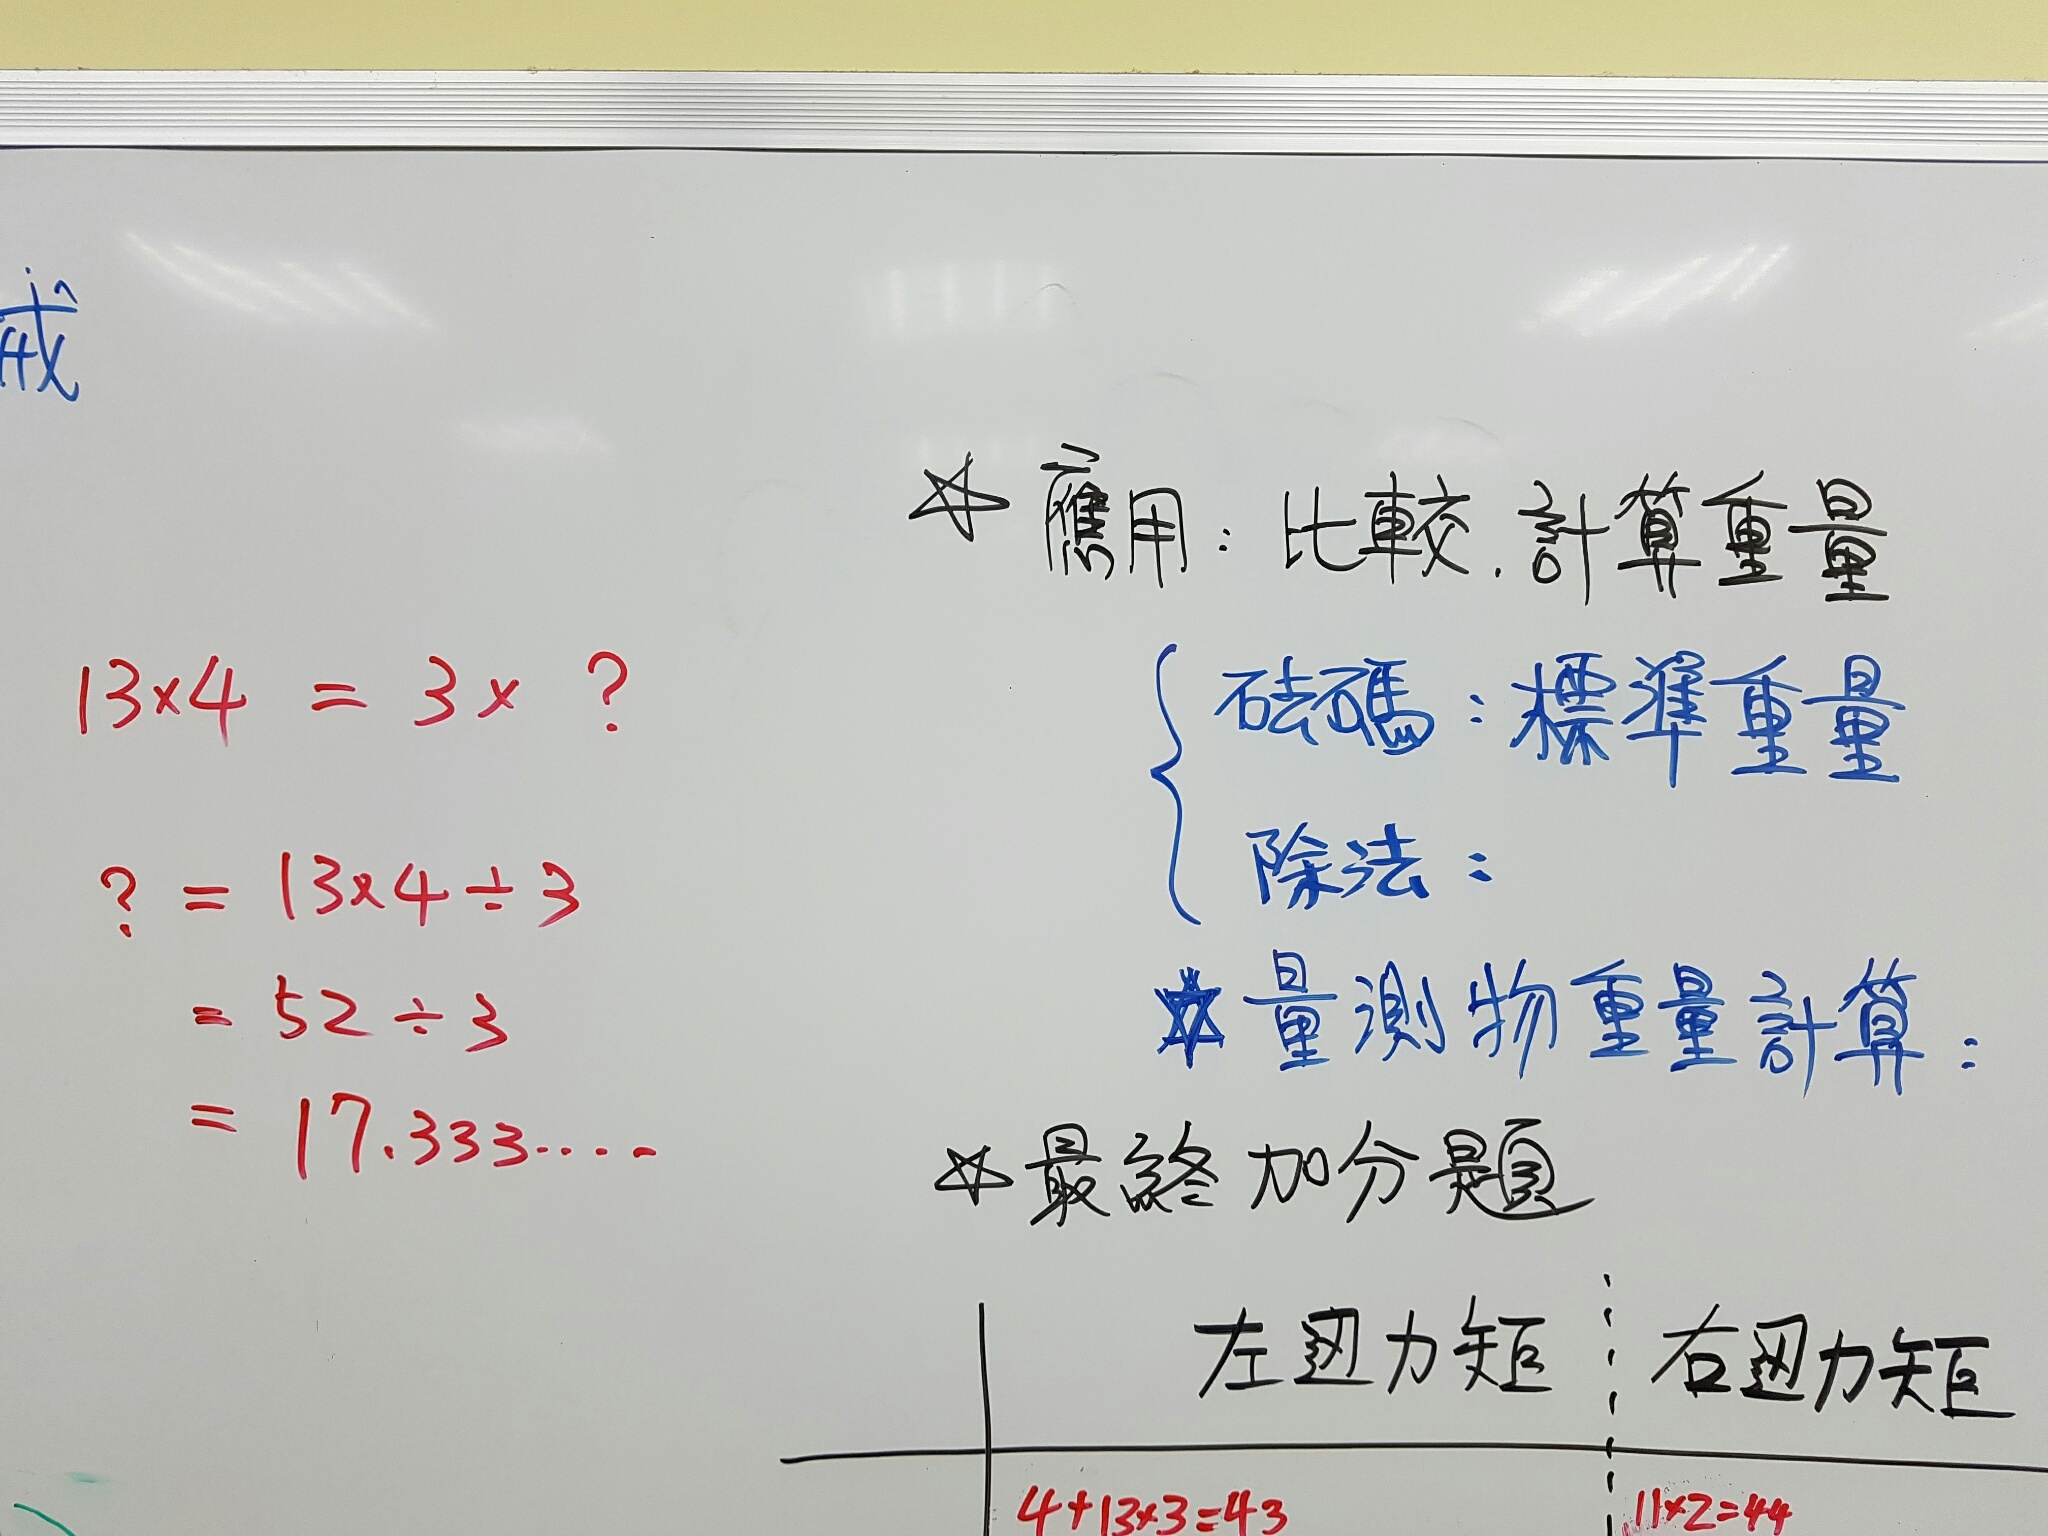 13×4 = 3× ?
? = 13×4÷3
= 52÷3
= 17.333....
☆ 應用：比較、計算重量
砝碼：標準重量
除法：
☆ 量測物重量計算：
☆ 最終加分題
左边力矩
右边力矩
4+13×3=43
11×2=44